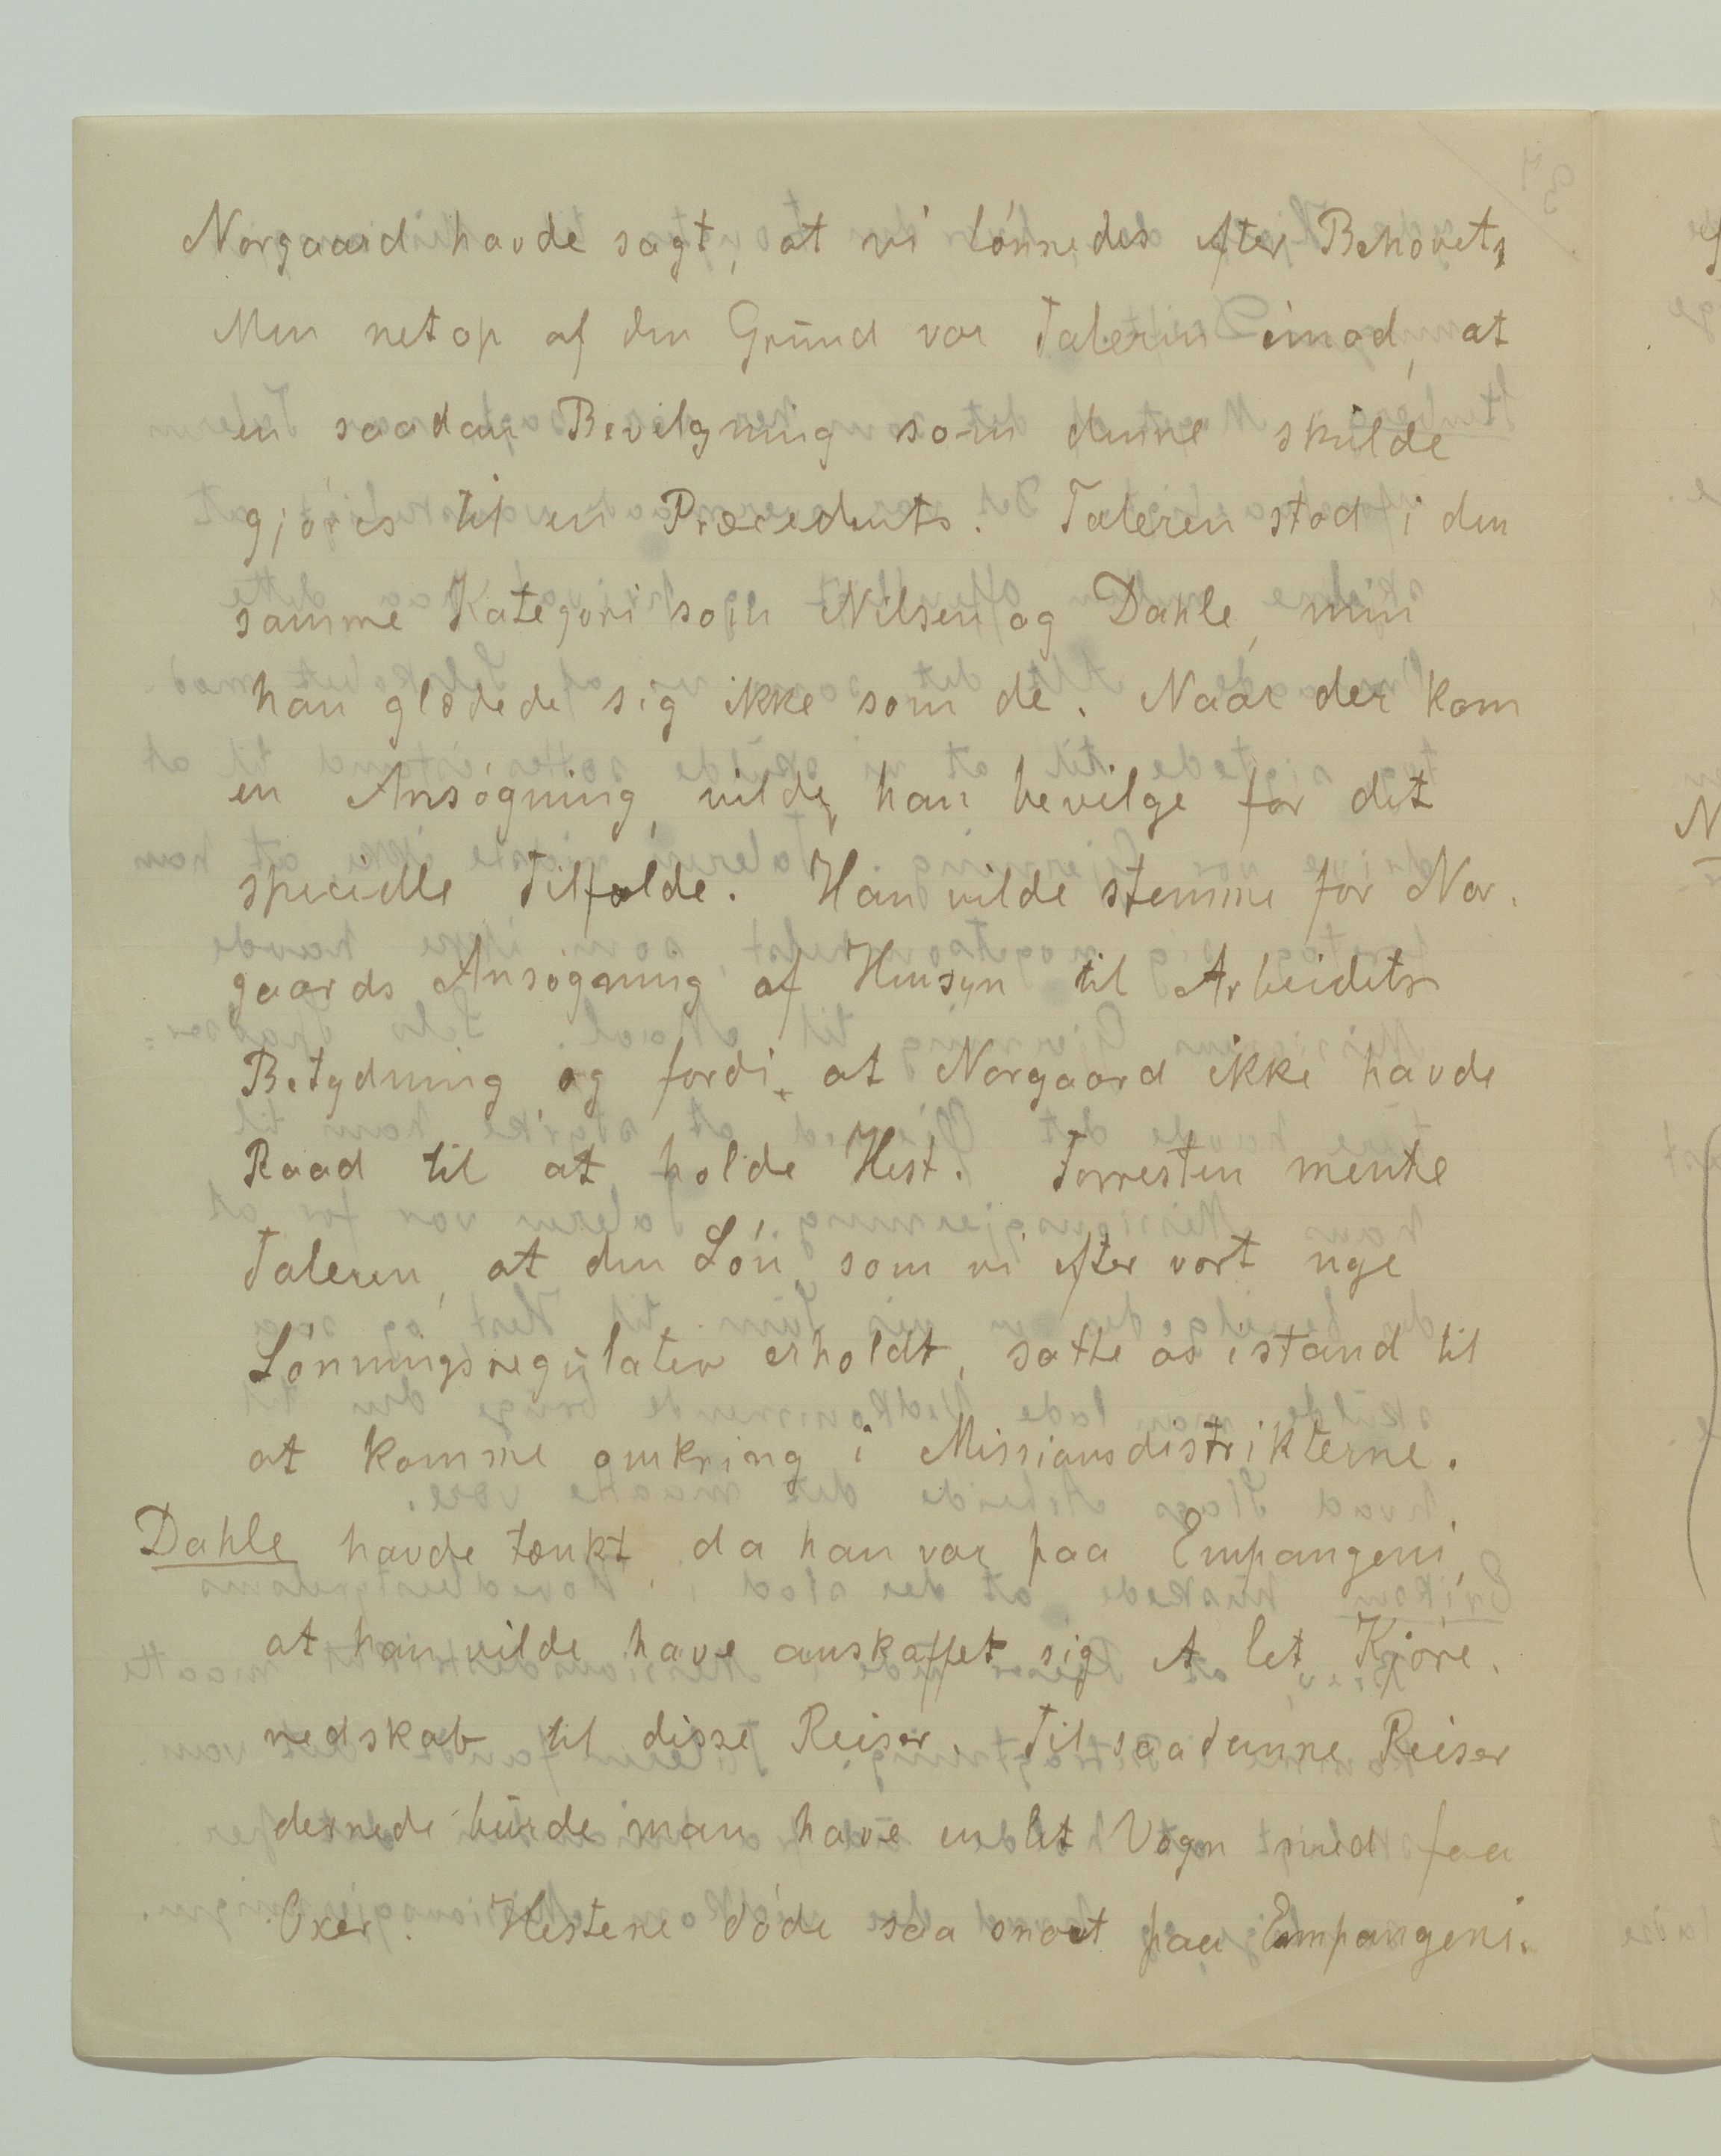 Norgaard havde sagt, at vi lónnedes efter Behovet,
Men netop af den Grund var Taleren imod, at
en saadan Bevilgning som denne skulde
gjóres til en Præcedents. Taleren stod i den
samme Kategori som Nilsen og Dahle, men
han glædede sig ikke som de. Naar der kom
en Ansógning, vilde han bevilge for det
specielle Tilfælde. Han vilde stemme for Nor-
gaards Ansógning af Hensyn til Arbeidets
Betydning og fordi, at Norgaard ikke havde
Raad til at holde Hest. Forresten mente
Taleren, at den Lón, som vi efter vort nye
Lónningsregulativ erholdt, satte os istand til
at komme omkring i Missionsdistrikterne.
Dahle havde tænkt, da han var paa Empangeni,
at han vilde have anskaffet sig et let Kjóre-
redskab til disse Reiser. Til saadanne Reiser
dernede burde man have en let Vogn med faa
Oxer. Hestene dóde saa snart paa Empangeni.